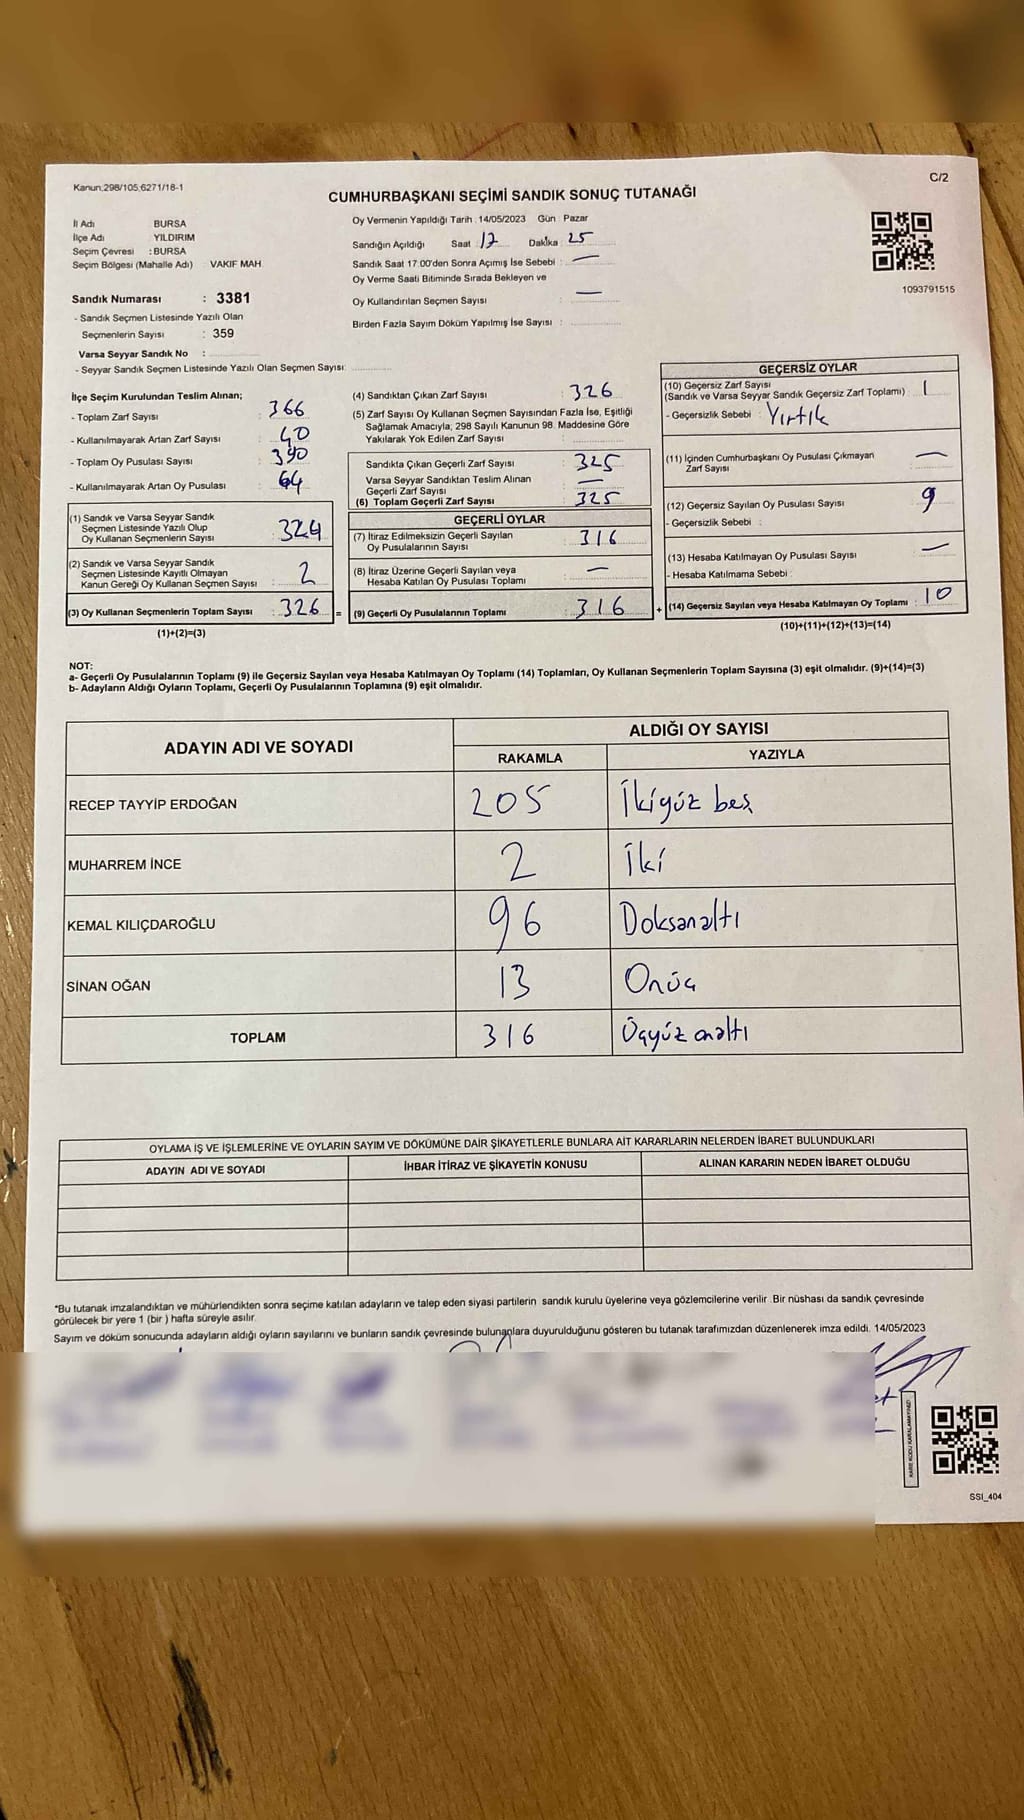 Kanun:298/105;6271/18-1
C/2
CUMHURBAŞKANI SEÇİMİ SANDIK SONUÇ TUTANAĞI
İl Adı BURSA
İlçe Adı YILDIRIM
Seçim Çevresi : BURSA
Seçim Bölgesi (Mahalle Adı) VAKIF MAH.
Sandık Numarası : 3381
- Sandık Seçmen Listesinde Yazılı Olan
Seçmenlerin Sayısı : 359
Varsa Seyyar Sandık No :
- Seyyar Sandık Seçmen Listesinde Yazılı Olan Seçmen Sayısı:
Oy Vermenin Yapıldığı Tarih : 14/05/2023 Gün : Pazar
Sandığın Açıldığı Saat : 17 Dakika : 25
Sandık Saat 17:00'den Sonra Açımış İse Sebebi : —
Oy Verme Saati Bitiminde Sırada Bekleyen ve
Oy Kullandırılan Seçmen Sayısı : —
Birden Fazla Sayım Döküm Yapılmış İse Sayısı :
1093791515
İlçe Seçim Kurulundan Teslim Alınan;
- Toplam Zarf Sayısı : 366
- Kullanılmayarak Artan Zarf Sayısı : 40
- Toplam Oy Pusulası Sayısı : 390
- Kullanılmayarak Artan Oy Pusulası : 64
(1) Sandık ve Varsa Seyyar Sandık
Seçmen Listesinde Yazılı Olup
Oy Kullanan Seçmenlerin Sayısı : 324
(2) Sandık ve Varsa Seyyar Sandık
Seçmen Listesinde Kayıtlı Olmayan
Kanun Gereği Oy Kullanan Seçmen Sayısı : 2
(3) Oy Kullanan Seçmenlerin Toplam Sayısı : 326 =
(1)+(2)=(3)
(4) Sandıktan Çıkan Zarf Sayısı : 326
(5) Zarf Sayısı Oy Kullanan Seçmen Sayısından Fazla İse, Eşitliği
Sağlamak Amacıyla, 298 Sayılı Kanunun 98. Maddesine Göre
Yakılarak Yok Edilen Zarf Sayısı :
Sandıkta Çıkan Geçerli Zarf Sayısı : 325
Varsa Seyyar Sandıktan Teslim Alınan
Geçerli Zarf Sayısı : —
(6) Toplam Geçerli Zarf Sayısı : 325
GEÇERLİ OYLAR
(7) İtiraz Edilmeksizin Geçerli Sayılan
Oy Pusulalarının Sayısı : 316
(8) İtiraz Üzerine Geçerli Sayılan veya
Hesaba Katılan Oy Pusulası Toplamı : —
(9) Geçerli Oy Pusulalarının Toplamı : 316 +
GEÇERSİZ OYLAR
(10) Geçersiz Zarf Sayısı
(Sandık ve Varsa Seyyar Sandık Geçersiz Zarf Toplamı) : 1
- Geçersizlik Sebebi : Yırtık
(11) İçinden Cumhurbaşkanı Oy Pusulası Çıkmayan
Zarf Sayısı : —
(12) Geçersiz Sayılan Oy Pusulası Sayısı : 9
- Geçersizlik Sebebi :
(13) Hesaba Katılmayan Oy Pusulası Sayısı : —
- Hesaba Katılmama Sebebi :
(14) Geçersiz Sayılan veya Hesaba Katılmayan Oy Toplamı : 10
(10)+(11)+(12)+(13)=(14)
NOT:
a- Geçerli Oy Pusulalarının Toplamı (9) ile Geçersiz Sayılan veya Hesaba Katılmayan Oy Toplamı (14) Toplamları, Oy Kullanan Seçmenlerin Toplam Sayısına (3) eşit olmalıdır. (9)+(14)=(3)
b- Adayların Aldığı Oyların Toplamı, Geçerli Oy Pusulalarının Toplamına (9) eşit olmalıdır.
ADAYIN ADI VE SOYADI
ALDIĞI OY SAYISI
RAKAMLA YAZIYLA
RECEP TAYYİP ERDOĞAN 205 İkiyüz beş
MUHARREM İNCE 2 İki
KEMAL KILIÇDAROĞLU 96 Doksanaltı
SİNAN OĞAN 13 Onüç
TOPLAM 316 Üçyüz onaltı
OYLAMA İŞ VE İŞLEMLERİNE VE OYLARIN SAYIM VE DÖKÜMÜNE DAİR ŞİKAYETLERLE BUNLARA AİT KARARLARIN NELERDEN İBARET BULUNDUKLARI
ADAYIN ADI VE SOYADI İHBAR İTİRAZ VE ŞİKAYETİN KONUSU ALINAN KARARIN NEDEN İBARET OLDUĞU
*Bu tutanak imzalandıktan ve mühürlendikten sonra seçime katılan adayların ve talep eden siyasi partilerin sandık kurulu üyelerine veya gözlemcilerine verilir. Bir nüshası da sandık çevresinde
görülecek bir yere 1 (bir ) hafta süreyle asılır.
Sayım ve döküm sonucunda adayların aldığı oyların sayılarını ve bunların sandık çevresinde bulunanlara duyurulduğunu gösteren bu tutanak tarafımızdan düzenlenerek imza edildi. 14/05/2023
KARE KODU KARALAMAYINIZ!
SSI_404